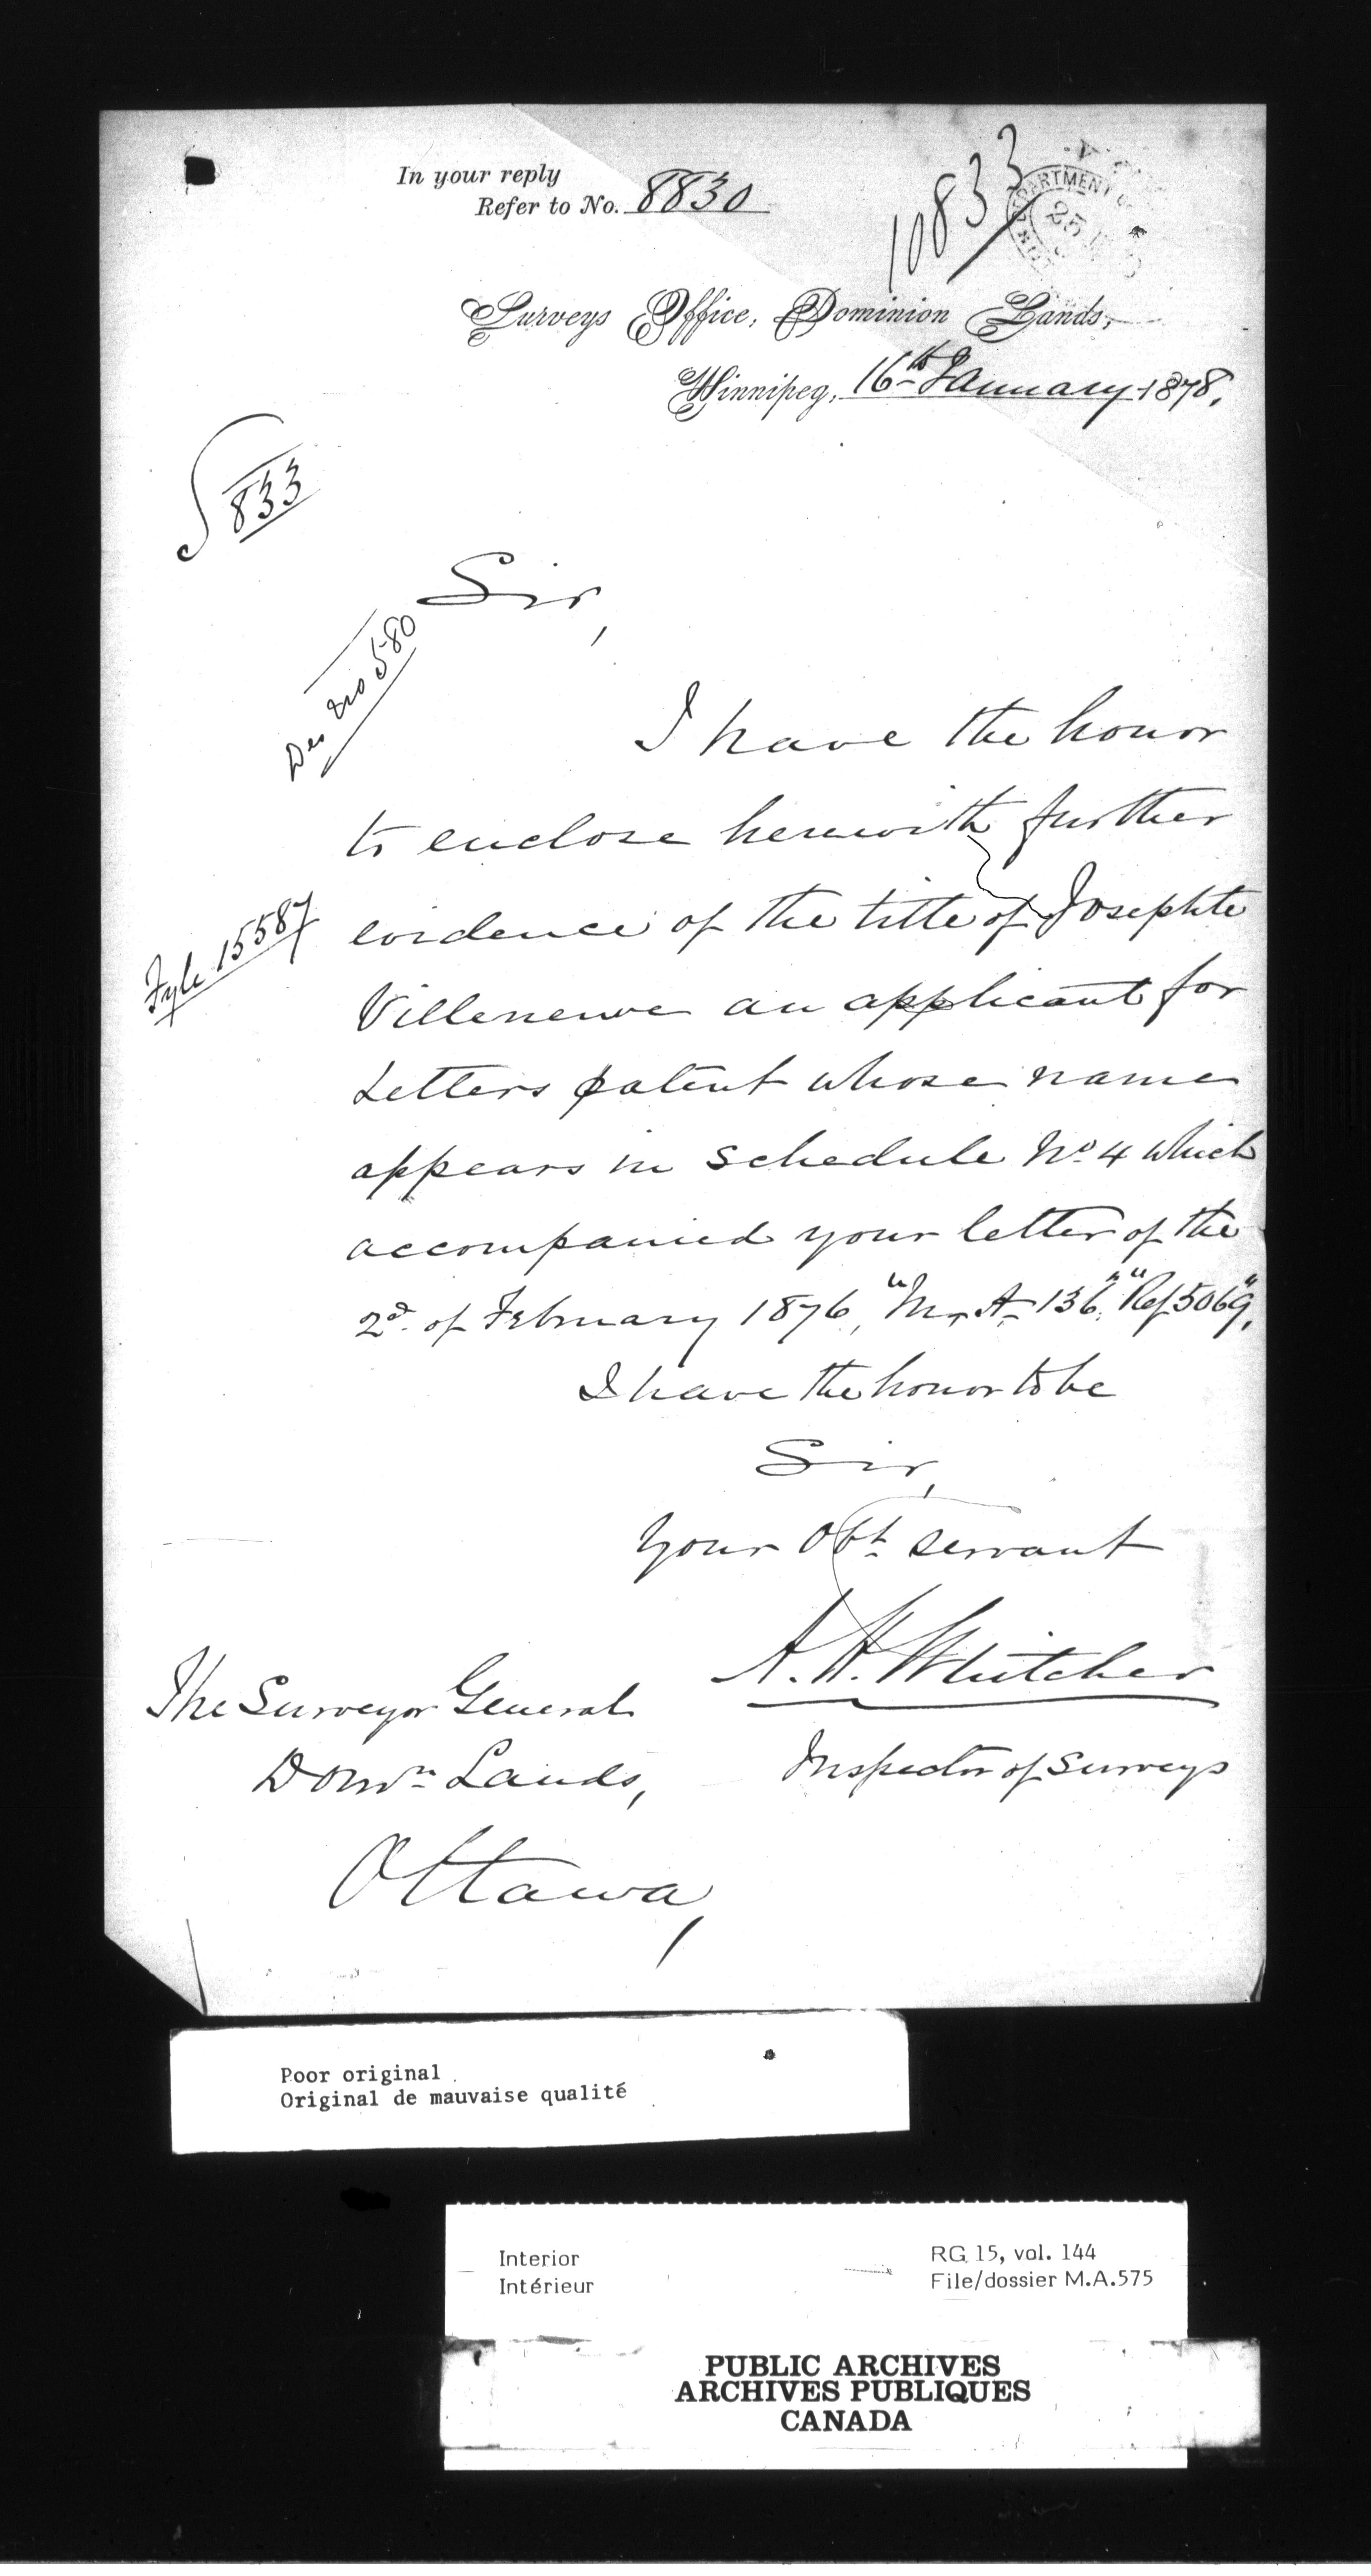 In your reply
Refer to No. 8830
10833
DEPARTMENT OF
25
Surveys Office, Dominion Lands,
Winnipeg, 16th January 1878.
833
Sir,
580
I have the honor
to enclose herewith further
Fyle 15587
evidence of the title of Josephte
Villeneuve an applicant for
Letters patent whose name
appears in schedule No. 4 which
accompanied your letter of the
2d. of February 1876, "M. A. 136," "Ref 5069",
I have the honor to be
Sir,
Your Obt. servant
A. H. Whitcher
The Surveyor General
Domn. Lands,
Inspector of Surveys
Ottawa,
Poor original
Original de mauvaise qualité
Interior
Intérieur
RG 15, vol. 144
File/dossier M.A.575
PUBLIC ARCHIVES
ARCHIVES PUBLIQUES
CANADA